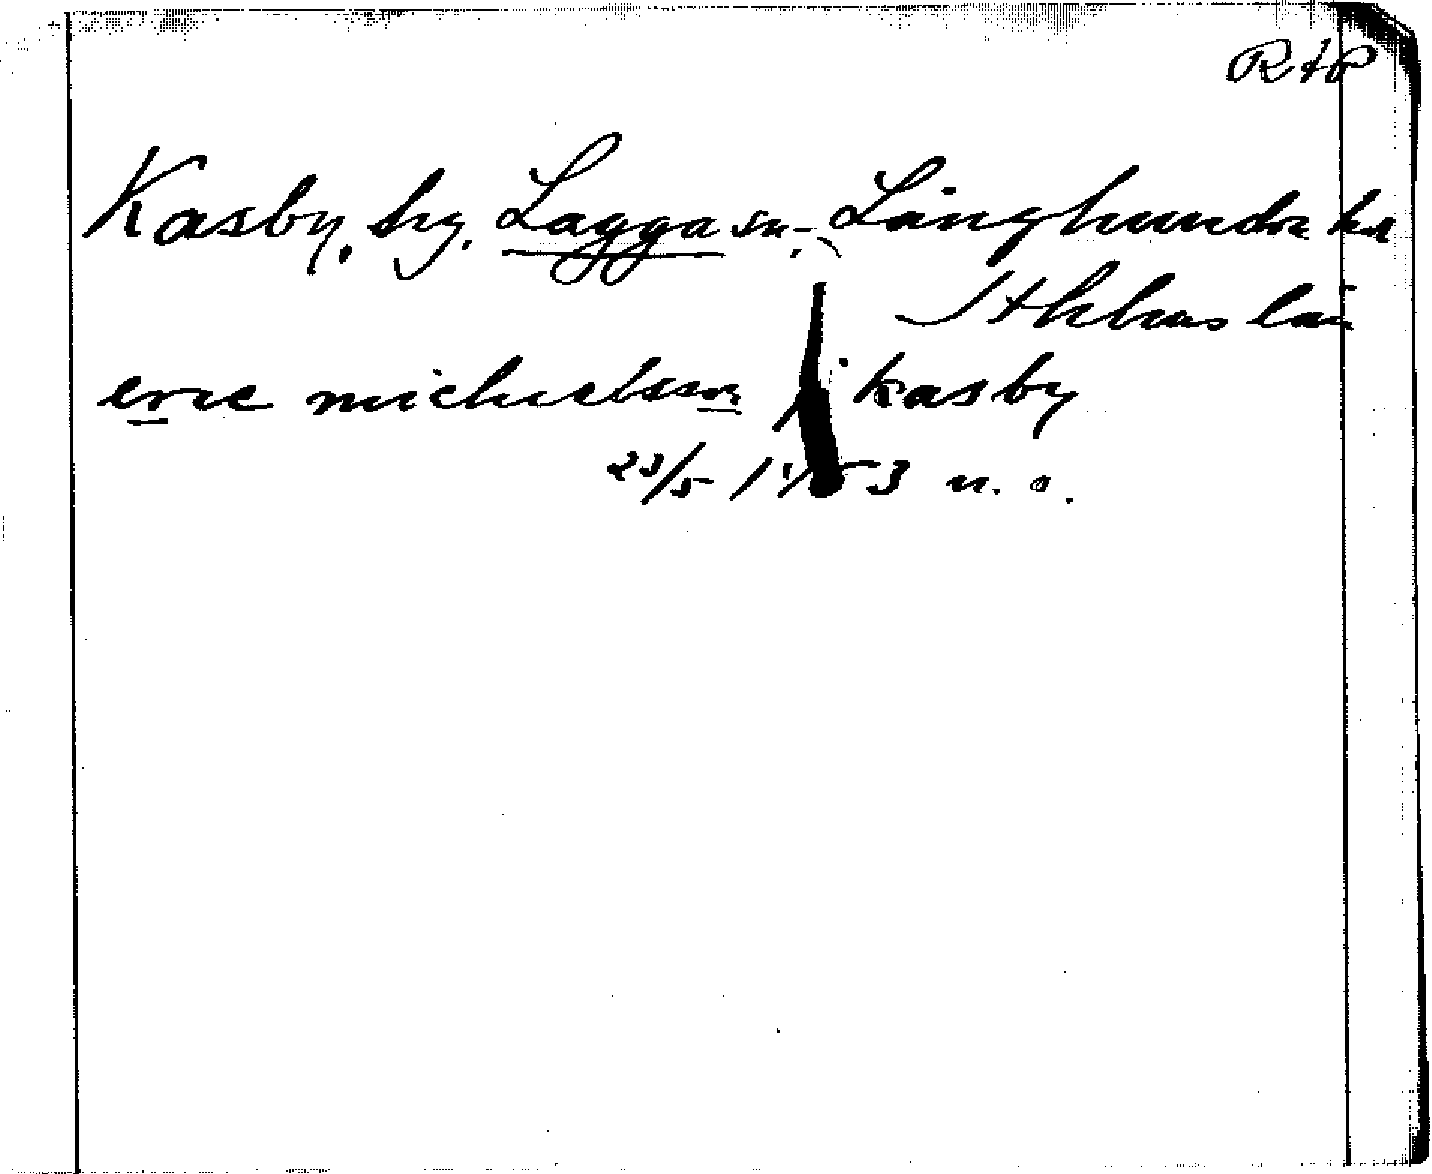 RAP
Kasby, by, Lagga sn., Långhundra hd
Sthlms län
eric michelsson i kasby
23/5 1453 u. o.